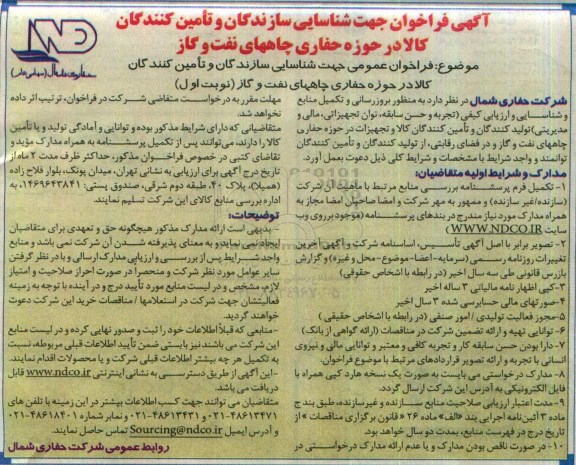 آگهی فراخوان جهت شناسایی سازندگان و تأمین کنندگان
کالا در حوزه حفاری چاههای نفت و گاز
موضوع: فراخوان عمومی جهت شناسایی سازندگان و تأمین کنندگان
کالا در حوزه حفاری چاههای نفت و گاز (نوبت اول)
NDC
شرکت حفاری شمال در نظر دارد به منظور بروزرسانی و تکمیل منابع
و شناسایی و ارزیابی کیفی (تجربه و حسن سابقه، توان تجهیزاتی، مالی و
مدیریتی) تولید کنندگان و تأمین کنندگان کالا و تجهیزات در حوزه حفاری
چاههای نفت و گاز و در فضای رقابتی، از تولید کنندگان و تأمین کنندگان
توانمند و واجد شرایط با مشخصات و شرایط کلی ذیل دعوت بعمل آورد.
مدارک و شرایط اولیه متقاضیان:
۱- تکمیل فرم پرسشنامه بررسی منابع مرتبط با ماهیت آن شرکت
(سازنده/غیر سازنده) و ممهور به مهر شرکت و امضا صاحبان امضا مجاز به
همراه مدارک مورد نیاز مندرج در بندهای پرسشنامه (موجود بر روی وب
سایت WWW.NDCO.IR)
۲- تصویر برابر با اصل آگهی تأسیس، اساسنامه شرکت و آگهی آخرین
تغییرات روزنامه رسمی (سرمایه-اعضا-موضوع-محل و غیره) و گزارش
بازرس قانونی طی سه سال اخیر (در رابطه با اشخاص حقوقی)
۳-کپی اظهار نامه مالیاتی ۳ ساله اخیر
۴-صورتهای مالی حسابرسی شده ۳ سال اخیر
۵-مجوز فعالیت تولیدی / امور صنفی (در رابطه با اشخاص حقیقی)
۶- توانایی تهیه و ارائه تضمین شرکت در مناقصات (ارائه گواهی از بانک)
۷- دارا بودن حسن سابقه کار و تجربه کافی و معتبر و توانایی مالی و نیروی
انسانی با تجربه و ارائه تصویر قراردادهای مرتبط با موضوع فراخوان.
۸- مدارک درخواستی می بایست به صورت یک نسخه هارد کپی همراه با
فایل الکترونیکی به آدرس این شرکت ارسال گردد.
۹- مدت اعتبار ارزیابی صلاحیت منابع سازنده و غیرسازنده، طبق بند ج
ماده ۳ آئین نامه اجرایی بند «الف» ماده ۲۶ «قانون برگزاری مناقصات» از
تاریخ درج در فهرست منابع، بمدت دو سال خواهد بود.
۱۰- در صورت ناقص بودن مدارک و یا عدم ارائه مدارک درخواستی در
مهلت مقرر به درخواست متقاضی شرکت در فراخوان، ترتیب اثر داده
نخواهد شد.
متقاضیانی که دارای شرایط مذکور بوده و توانایی و آمادگی تولید و یا تأمین
کالا را دارند، می توانند پس از تکمیل پرسشنامه به همراه مدارک مؤید و
تقاضای کتبی در خصوص فراخوان مذکور، حداکثر ظرف مدت ۲ ماه از
تاریخ درج آگهی برای ارزیابی به نشانی تهران، میدان پونک، بلوار فلاح زاده
(همیلا)، پلاک ۴۰، طبقه دوم شرقی، صندوق پستی: ۱۴۶۹۶۴۳۸۴۱، به
اداره بررسی منابع کالای این شرکت تسلیم نمایند.
توضیحات:
- بدیهی است ارائه مدارک مذکور هیچگونه حق و تعهدی برای متقاضیان
ایجاد نمی نماید و به معنای پذیرفته شدن آن شرکت نمی باشد و منابع
واجد شرایط پس از بررسی و ارزیابی مدارک ارسالی و با در نظر گرفتن
سایر عوامل مورد نظر شرکت و منحصراً در صورت احراز صلاحیت و امتیاز
لازم، مشخص و در لیست منابع مورد تأیید درج و در آینده با توجه به زمینه
فعالیتشان جهت شرکت در استعلامها / مناقصات خرید این شرکت دعوت
خواهند گردید.
-منابعی که قبلاً اطلاعات خود را ثبت و صدور نهایی کرده و در لیست منابع
این شرکت می باشند نیز بایستی ضمن تأیید اطلاعات قبلی مربوطه، نسبت
به تکمیل هر چه بیشتر اطلاعات قبلی شرکت و یا محصولات اقدام نمایند.
-این آگهی از طریق دسترسی به نشانی اینترنتی www.ndco.ir قابل
دریافت می باشد.
متقاضیان می توانند جهت کسب اطلاعات بیشتر در این زمینه با تلفن های
۴۸۶۱۳۴۷۱-۰۲۱ و ۴۸۶۱۳۴۳۱-۰۲۱ و نمابر شماره ۴۸۶۱۸۴۰۱-۰۲۱
و آدرس ایمیل Sourcing@ndco.ir تماس حاصل نمایند.
روابط عمومی شرکت حفاری شمال